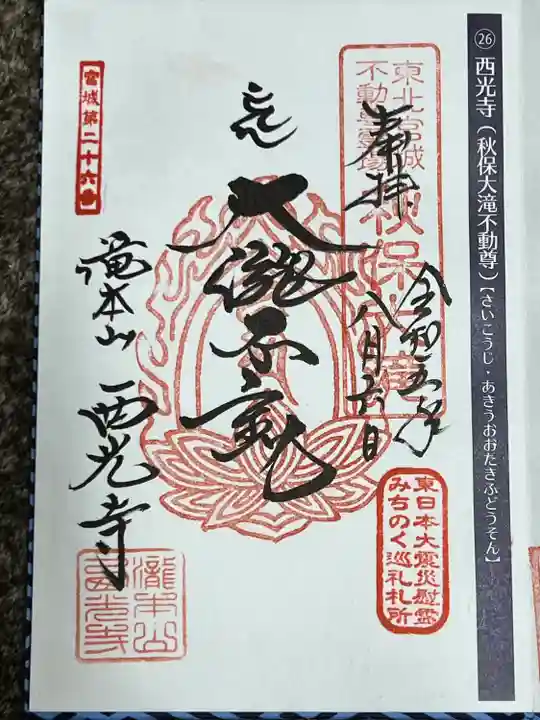 ㉖ 西光寺(秋保大滝不動尊)【さいこうじ・あきうおおたきふどうそん】
東北宮城
不動尊霊場
秋保大滝
奉拝
令和五年
八月六日
東日本大震災慰霊
みちのく巡礼札所
大滝不動
宮城第二十六番
滝本山 西光寺
瀧本山
西光寺